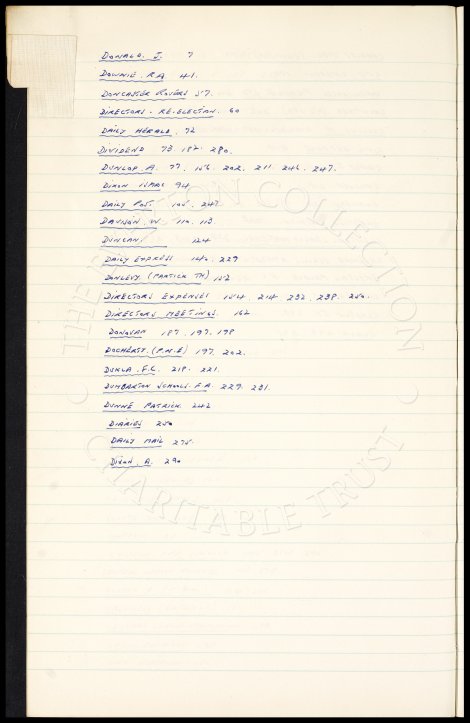 DONALD. J. 7
DOWNIE. R.A. 41.
DONCASTER ROVERS 57.
DIRECTORS. RE. ELECTION. 60
DAILY HERALD. 72
DIVIDEND 73 182. 280.
DUNLOP. A. 77. 156. 202. 211. 246. 247.
DIXON ISAAC 94.
DAILY POST. 105. 247.
DAVISON. W. 110. 113.
DUNCAN. 124
DAILY EXPRESS 142. 229
DONLEVY. (PARTICK TH) 152
DIRECTORS EXPENSES 154. 214 232. 238. 250.
DIRECTORS MEETINGS. 162
DONOVAN 187. 197. 198
DOCHERTY. (P.N.E) 197. 202.
DUKLA. F.C. 218. 221.
DUMBARTON SCHOOLS. F.A. 229. 231.
DUNNE PATRICK 242
DIARIES 250
DAILY MAIL 275.
DIXON. A. 290
THE COLLECTION
CHARITABLE TRUST